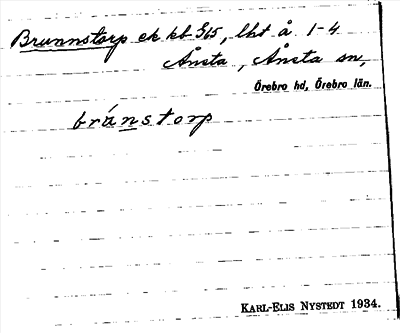 Brunnstorp ek kb 3/65, lht å 1-4
Ånsta, Ånsta sn,
Örebro hd, Örebro län.
bránstorp
KARL-ELIS NYSTEDT 1934.